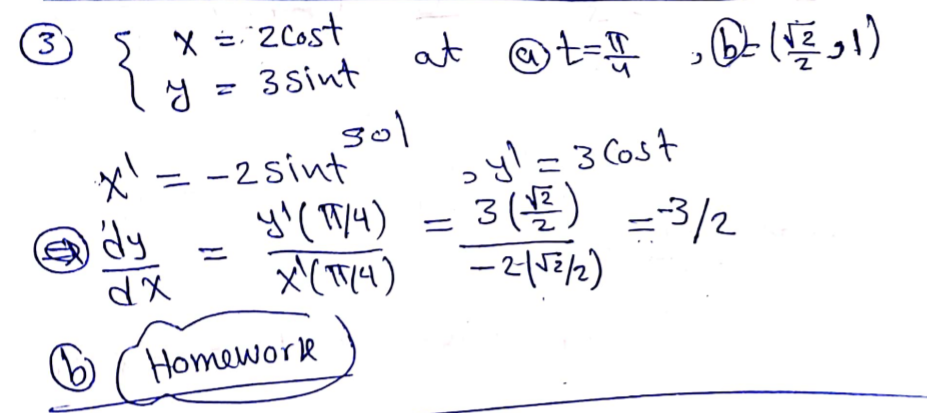 ③ { x = 2cost at ⓐ t=π/4 , ⓑ= (√2/2 , 1)
y = 3sint
sol
x' = -2sint , y' = 3cost
⇒ dy/dx = y'(π/4)/x'(π/4) = 3(√2/2)/-2(√2/2) = -3/2
ⓑ Homework